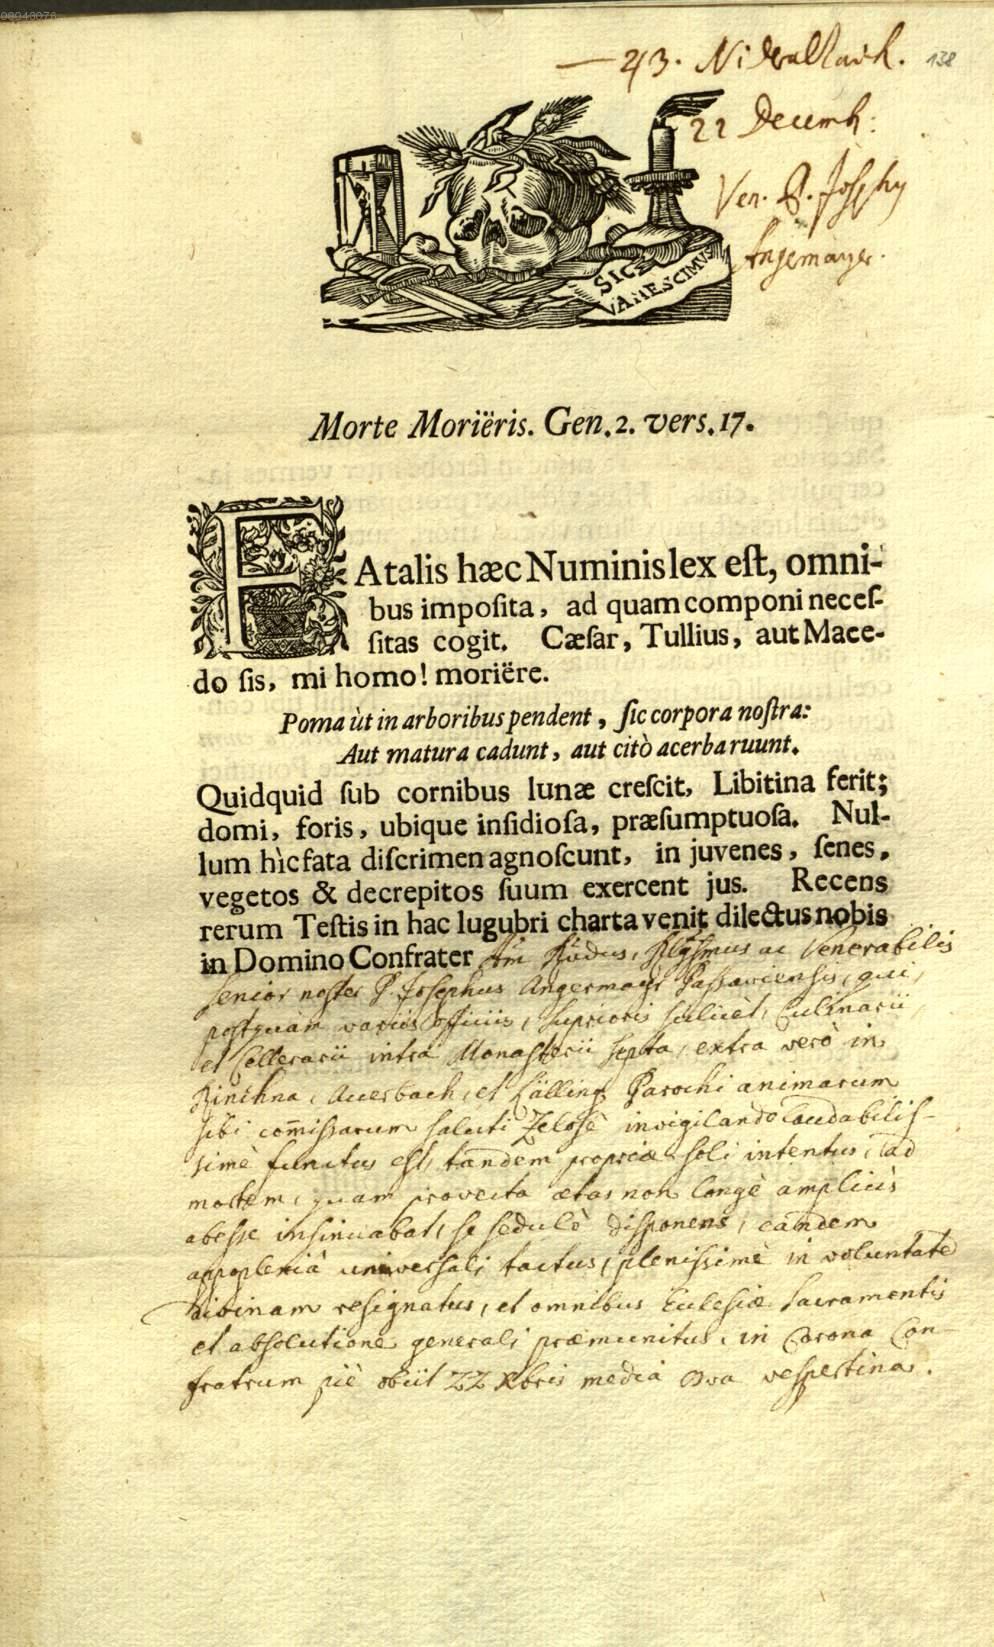 00940076
— 43. Nideraltaich. 138
22 Decemb:
Ven. P. Josephy
Angermayr.
SIC E-
VANESCIMVS
Morte Moriëris. Gen. 2. vers. 17.
FAtalis hæc Numinis lex eſt, omni-
bus impoſita, ad quam componi neceſ-
ſitas cogit. Cæſar, Tullius, aut Mace-
do ſis, mi homo! moriëre.
Poma ùt in arboribus pendent, ſic corpora noſtra:
Aut matura cadunt, aut citò acerba ruunt.
Quidquid ſub cornibus lunæ creſcit, Libitina ferit;
domi, foris, ubique inſidioſa, præſumptuoſa. Nul-
lum hìc fata diſcrimen agnoſcunt, in juvenes, ſenes,
vegetos & decrepitos ſuum exercent jus. Recens
rerum Teſtis in hac lugubri charta venit dilectus nobis
in Domino Confrater Rdus, Rlgsmus ac Venerabilis
Senior noster P. Josephus Angermayr Passaviensis, qui,
postquàm variis officiis, Supprioris scilicèt, Culinarii,
et Cellerarii intra Monasterii septa, extra verò in
Rinchna, Auerbach, et Hälling Parochi animarum
sibi com̄issarum saluti Zelosè invigilando laudabilis-
simè functus est, tandem propriæ soli intentus, ad
mortem, quam provecta ætas non longè ampliùs
abesse insinuabat, se sedulò disponens, eandem
appoplexiâ universali tactus, plenissimè in voluntate
divinam resignatus, et omnibus Ecclesiæ Sacramentis
et absolutione generali præmunitus, in Corona Con-
fratrum piè obiit 22 Xbris media Hora vespertina.